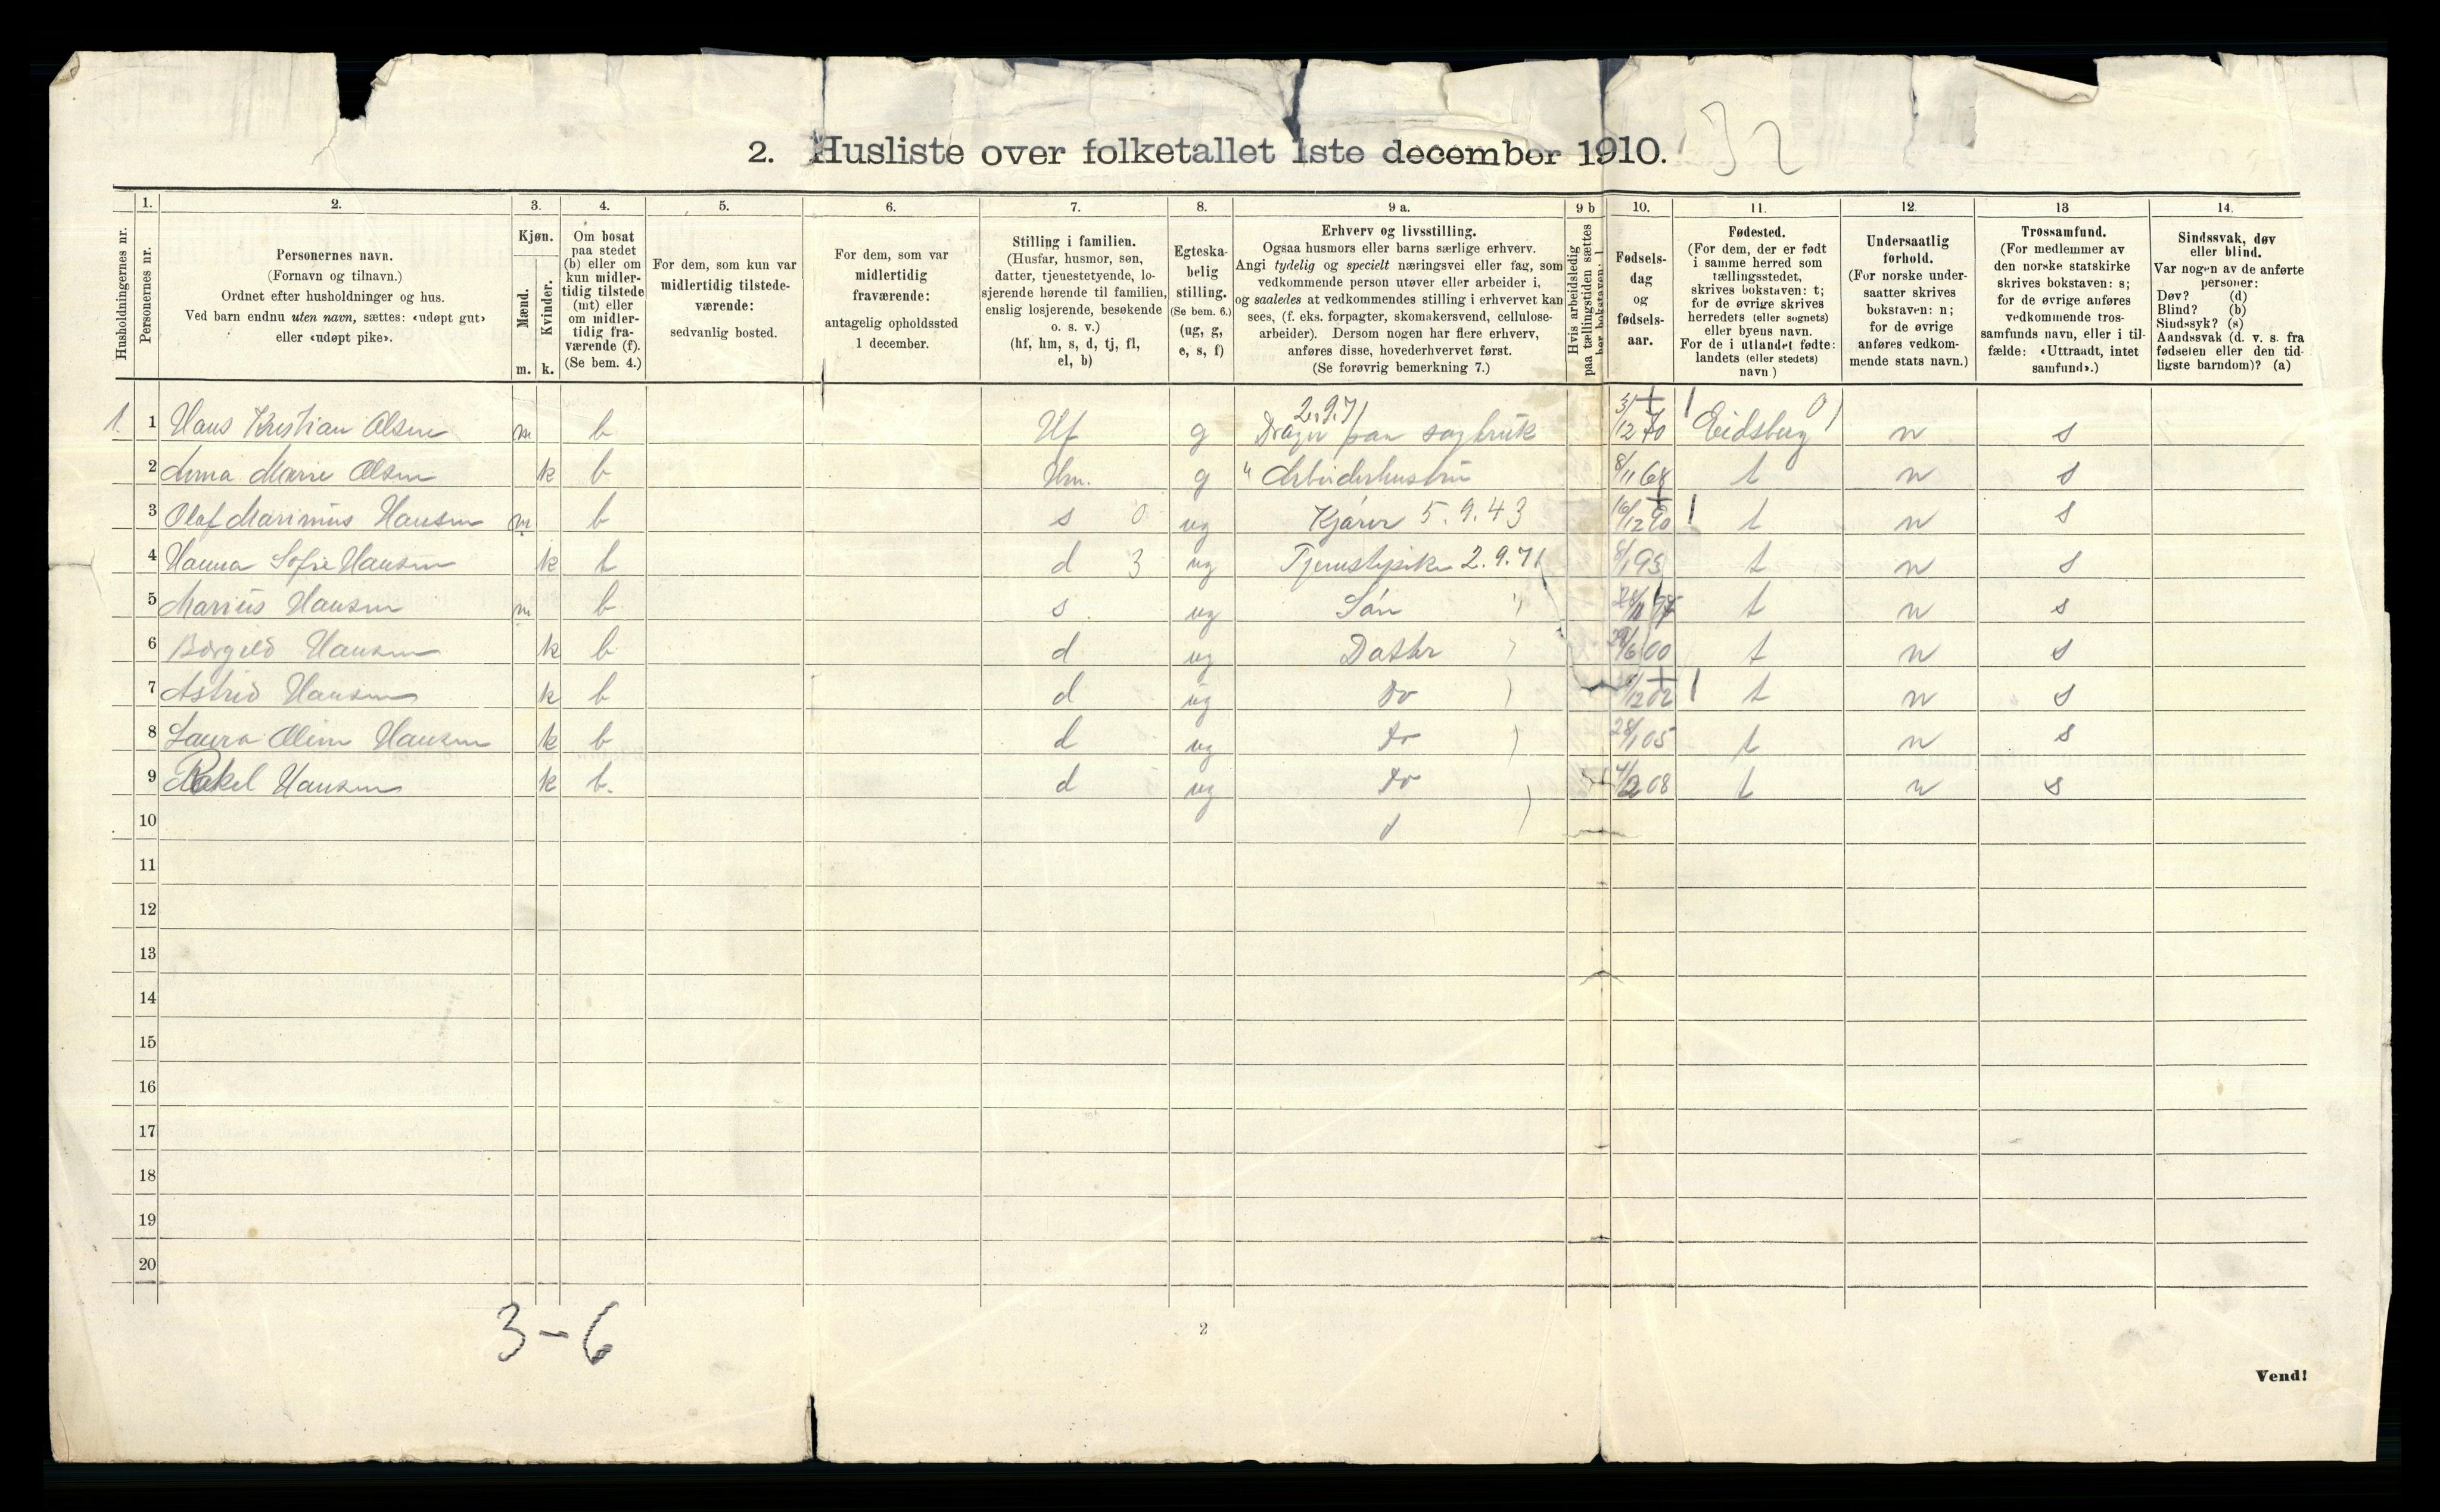 32
2. Husliste over folketallet 1ste december 1910.
Husholdningernes nr.
1.
Personernes nr.
2.
Personernes navn.
(Fornavn og tilnavn.)
Ordnet efter husholdninger og hus.
Ved barn endnu uten navn, sættes: «udøpt gut»
eller «udøpt pike».
3.
Kjøn.
Mænd.
Kvinder.
m. k.
4.
Om bosat
paa stedet
(b) eller om
kun midler-
tidig tilstede
(mt) eller
om midler-
tidig fra-
værende (f).
(Se bem. 4.)
5.
For dem, som kun var
midlertidig tilstede-
værende:
sedvanlig bosted.
6.
For dem, som var
midlertidig
fraværende:
antagelig opholdssted
1 december.
7.
Stilling i familien.
(Husfar, husmor, søn,
datter, tjenestetyende, lo-
sjerende hørende til familien,
enslig losjerende, besøkende
o. s. v.)
(hf, hm, s, d, tj, fl,
el, b)
8.
Egteska-
belig
stilling.
(Se bem. 6.)
(ug, g,
e, s, f)
9 a.
Erhverv og livsstilling.
Ogsaa husmors eller barns særlige erhverv.
Angi tydelig og specielt næringsvei eller fag, som
vedkommende person utøver eller arbeider i,
og saaledes at vedkommendes stilling i erhvervet kan
sees, (f. eks. forpagter, skomakersvend, cellulose-
arbeider). Dersom nogen har flere erhverv,
anføres disse, hovederhvervet først.
(Se forøvrig bemerkning 7.)
9 b
Hvis arbeidsledig
paa tællingstiden sættes
her bokstaven: l
10.
Fødsels-
dag
og
fødsels-
aar.
11.
Fødested.
(For dem, der er født
i samme herred som
tællingsstedet,
skrives bokstaven: t;
for de øvrige skrives
herredets (eller sognets)
eller byens navn.
For de i utlandet fødte:
landets (eller stedets)
navn)
12.
Undersaatlig
forhold.
(For norske under-
saatter skrives
bokstaven: n;
for de øvrige
anføres vedkom-
mende stats navn.)
13
Trossamfund.
(For medlemmer av
den norske statskirke
skrives bokstaven: s;
for de øvrige anføres
vedkommende tros-
samfunds navn, eller i til-
fælde: «Uttraadt, intet
samfund».)
14.
Sindssvak, døv
eller blind.
Var nogen av de anførte
personer:
Døv? (d)
Blind? (b)
Sindssyk? (s)
Aandssvak (d. v. s. fra
fødselen eller den tid-
ligste barndom)? (a)
2.9.71
1. 1 Hans Kristian Olsen m b Hf g Drager paa sagbruk 3/12 70 Eidsberg 0 n s
2 Anna Marie Olsen k b Hm. g " Arbeiderhustru 8/11 68 t n s
3 Olaf Marinius Hansen m b s 0 ug Kjører 5.9.43 16/12 90 t n s
4 Hanna Sofie Hansen k b d 3 ug Tjenestepike 2.9.71 8/1 93 t n s
5 Marius Hansen m b s ug Søn " t n s
6 Borgild Hansen k b d ug Datter 29/6 00 t n s
7 Astrid Hansen k b d ug do 12 02 t n s
8 Laura Oline Hansen k b d ug do 28/1 05 t n s
9 Rakel Hansen k b. d ug do 4/2 08 t n s
10
11
12
13
14
15
16
17
18
19
20
3-6
2
Vend!